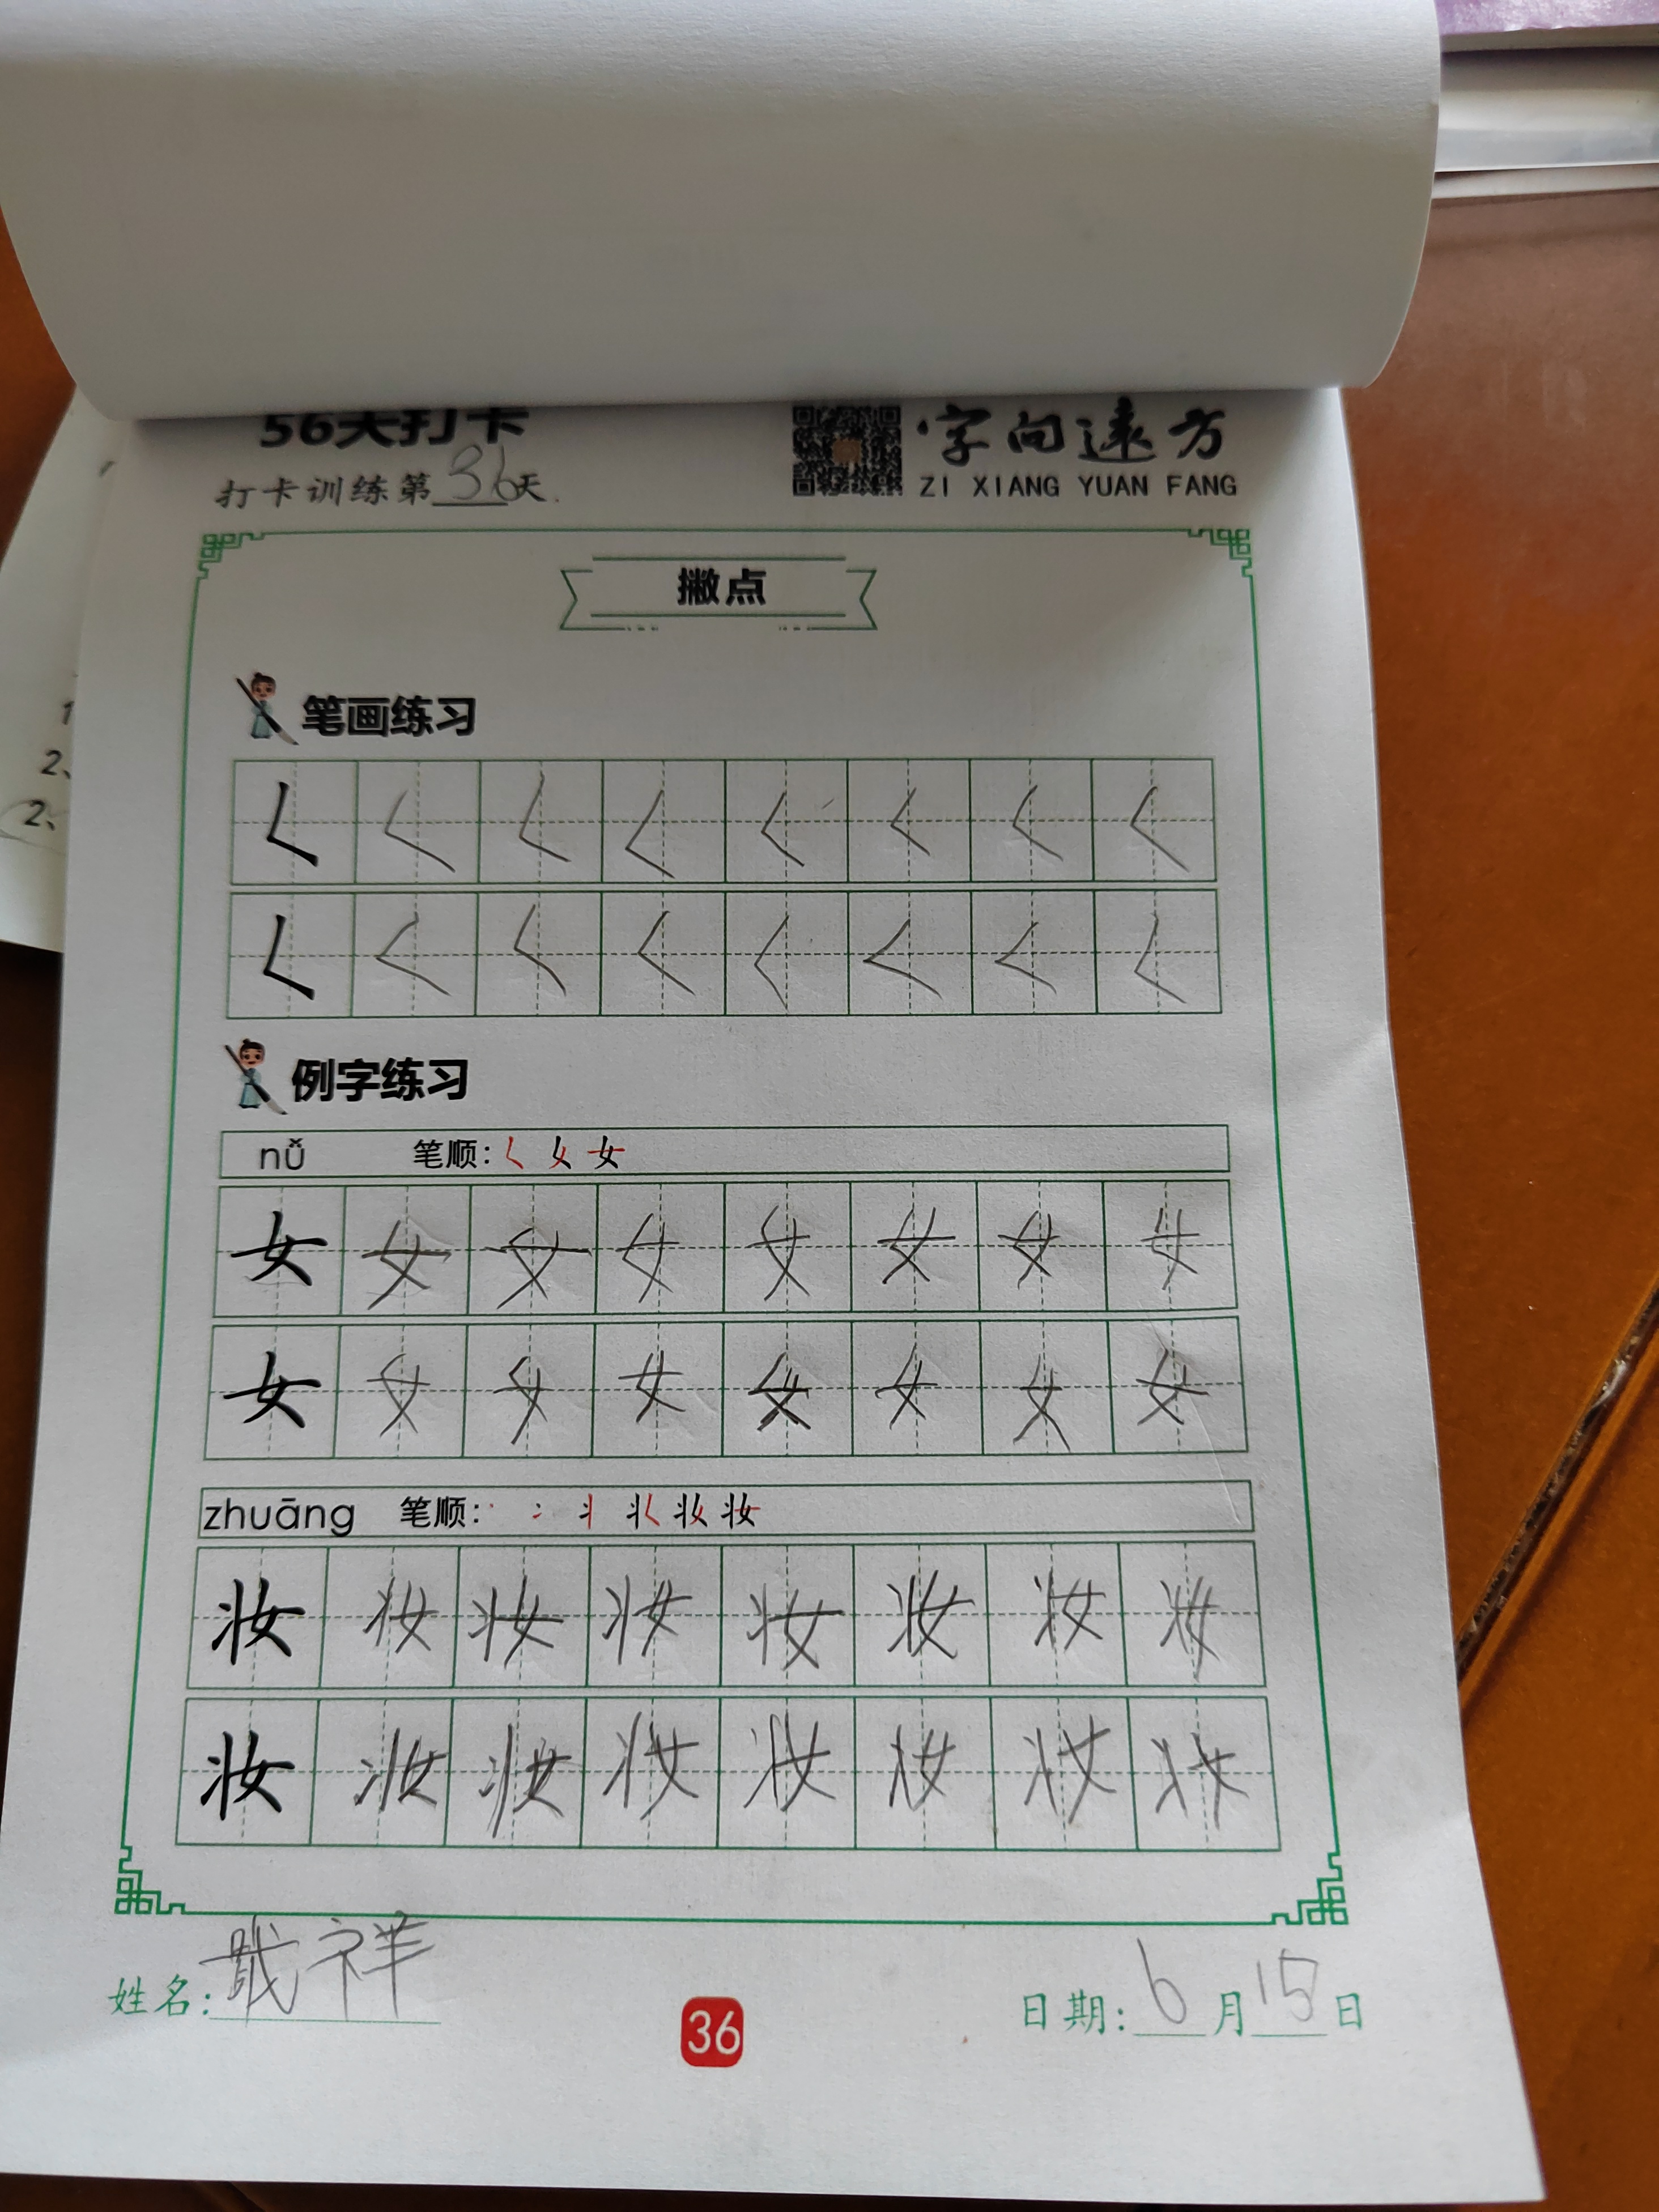 56天打卡
打卡训练第36天.
字向远方
ZI XIANG YUAN FANG
撇点
笔画练习
𡿨 𡿨 𡿨 𡿨 𡿨 𡿨 𡿨 𡿨
𡿨 𡿨 𡿨 𡿨 𡿨 𡿨 𡿨 𡿨
例字练习
nǚ 笔顺: 女
女 女 女 女 女 女 女 女
女 女 女 女 女 女 女 女
zhuāng 笔顺: 妆
妆 妆 妆 妆 妆 妆 妆 妆
妆 妆 妆 妆 妆 妆 妆 妆
姓名: 祥
36
日期: 6月15日
2、
2、